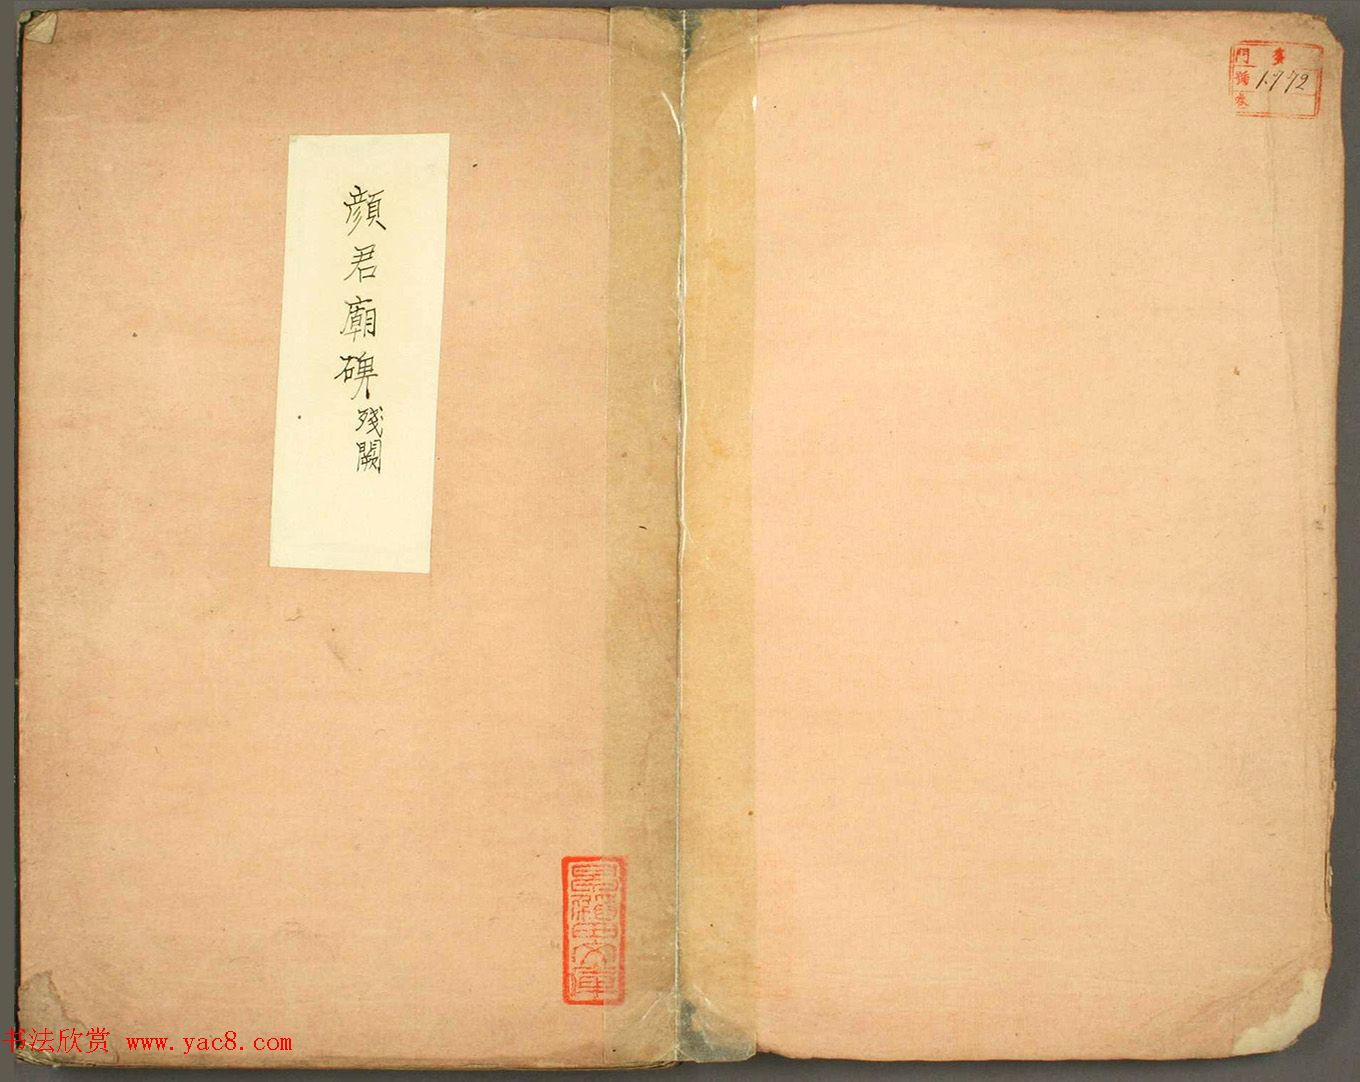 門 号
1772
卷
顔君廟碑残闕
文庫
书法欣赏 www.yac8.com